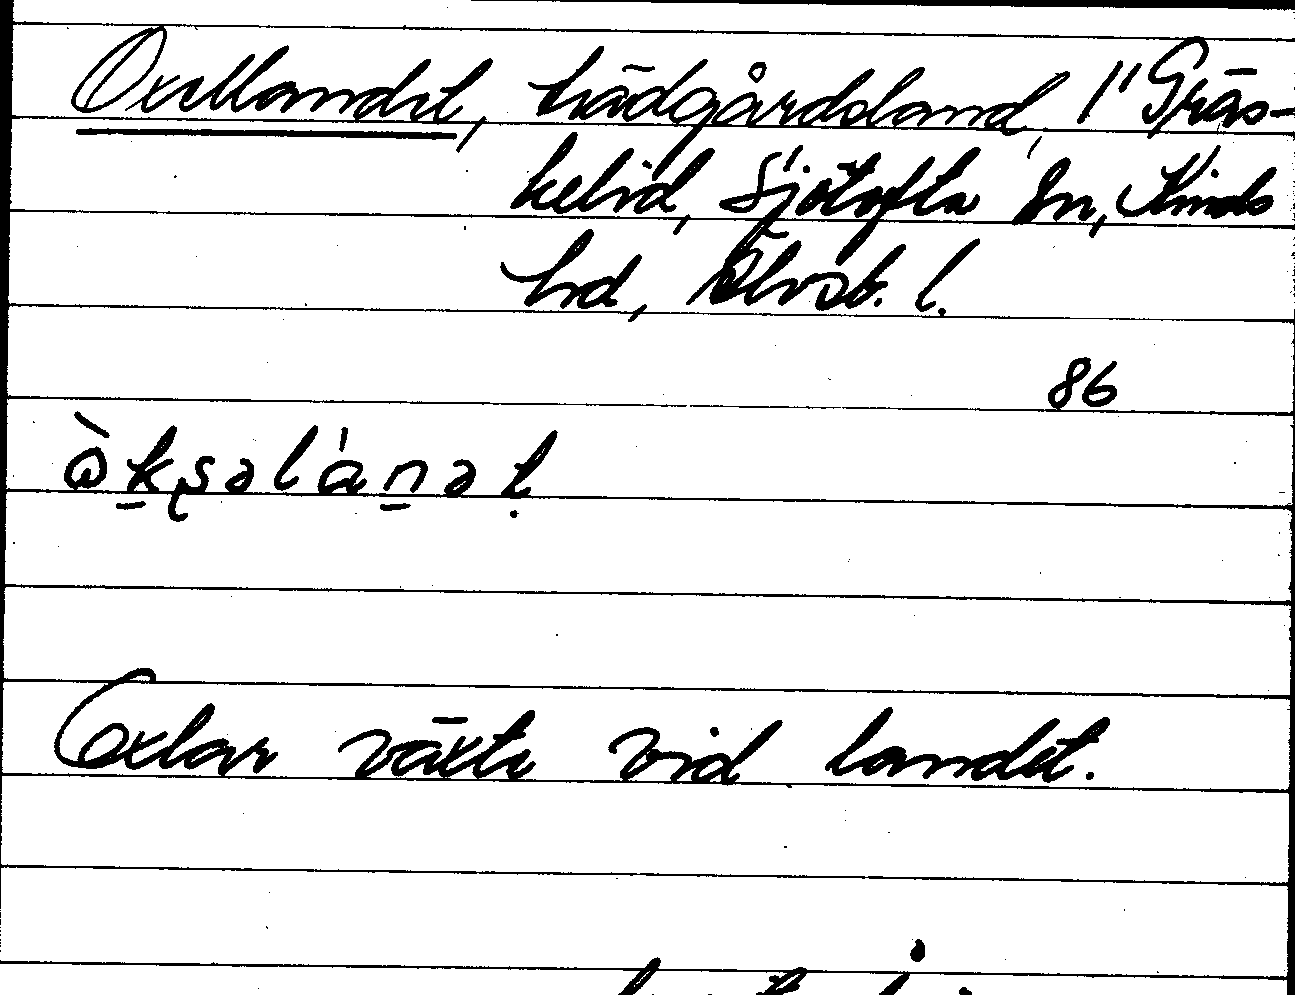 Oxellandet, trädgårdsland, 1" Gräs-
kelid, Sjötofta sn, Kinds
hd, Älvsb. l.
86
ὰk̲ʂəlán̲əṭ
Oxlar växte vid landet.